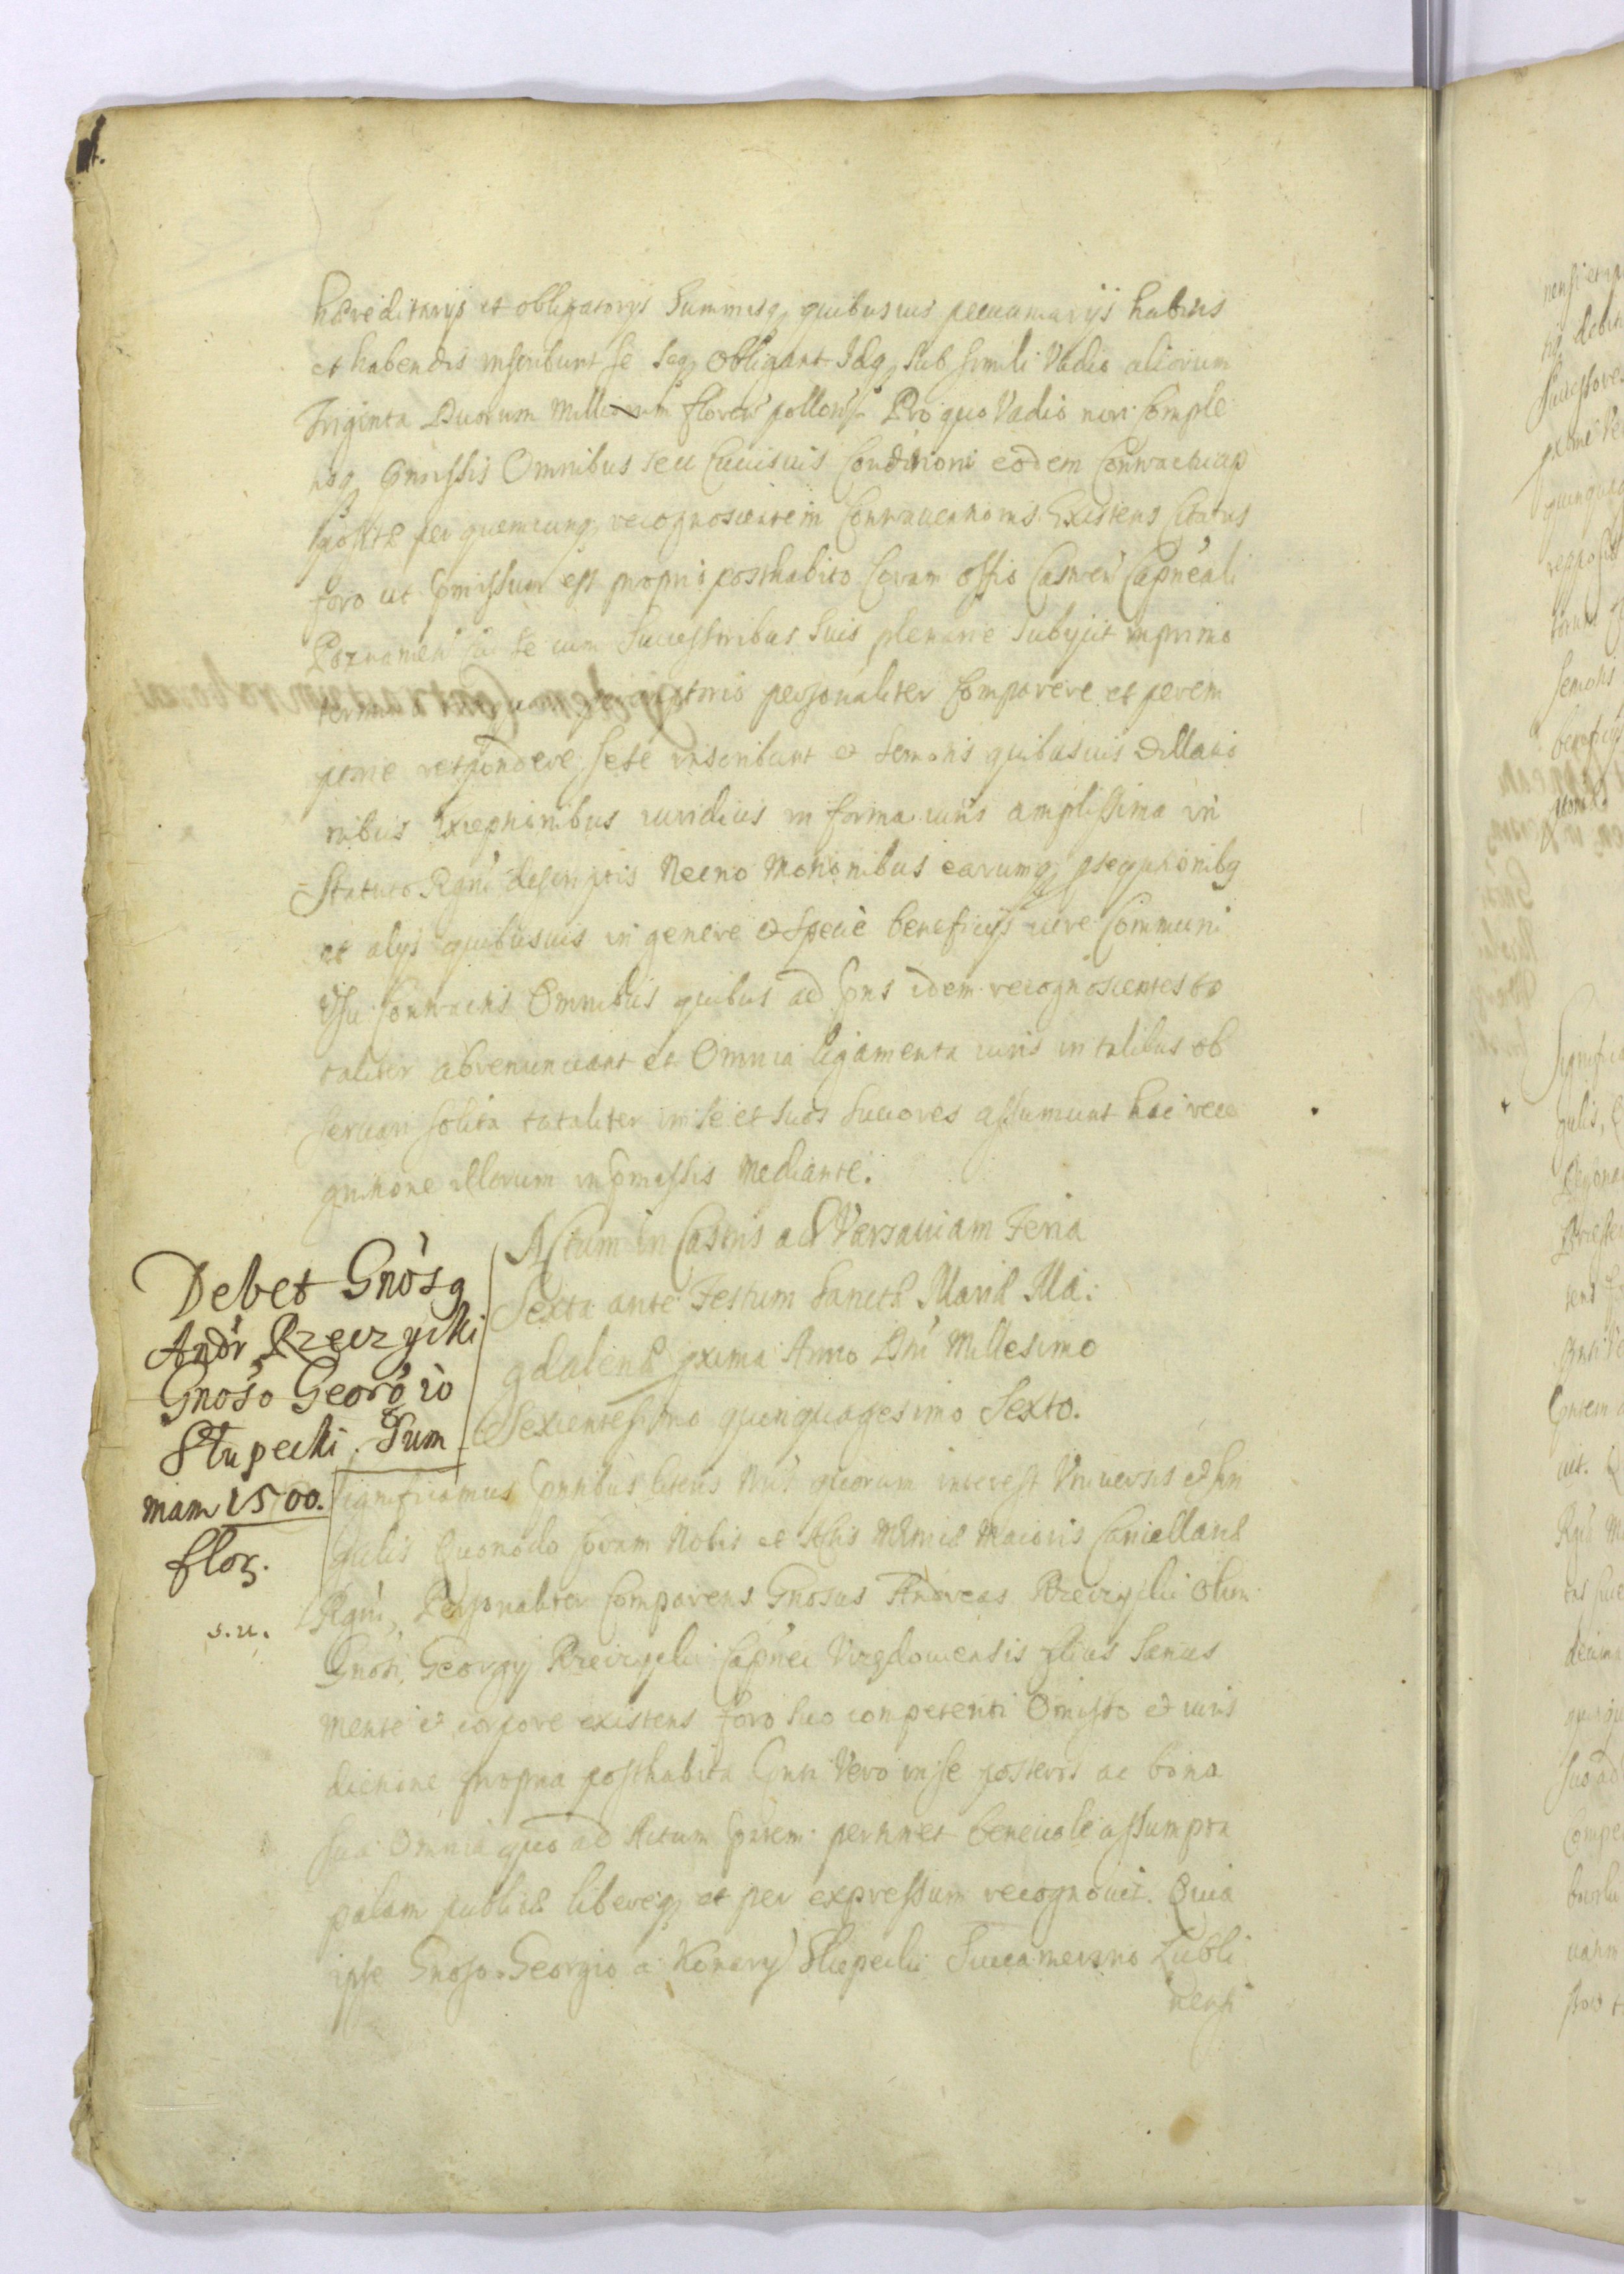 hæreditarijs et obligatorijs Summisq quibusuis pecuniarijs habitis
et habendis inscribunt se seq obligant Idq sub simili Vadio aliorum
Triginta Duorum Millium floren pollon Pro quo Vadio non Comple
tisq pmissis Omnibus seu cuiuisuis Conditioni eodem Contractu
posite per quemcunq recognoscentem Contrauentionis Existens Citatus
foro ut pmissum est proprio posthabito Coram offio Castren Capneali
Poznanien se cum Successoribus Suis plenarie Subyjit in primo
termino personaliter Comparere et perem
ptorie respondere sese inscribunt et Semotis quibusuis Dillatio
nibus Exceptionibus iuridicis in forma iuris amplissima in
Statuto Regni descriptis Necno Motionibus earumq psequtionibq
et alys quibusuis in genere et Specie beneficijs iure Communi
Usu Contractis Omnibus quibus ad pns idem recognoscentes to
taliter abrenunciant et Omnia ligamenta iuris in talibus ob
seruari solita totaliter in se et suos Succores assumunt hac reco
gnitione illorum in pmissis Mediante.
Actum in Castris ad Varsauiam Feria
Sexta ante Festum Sanctæ Mariæ Ma:
gdalenæ pxima Anno Dni Millesimo
Sexcentesimo quinquagesimo Sexto.
Debet Gnosq
Andr Rzeczycki
Gnoso Georgio
Słupecki Sum
mam 1500.
flor.
s.u.
Significamus pntibus literis Nris quorum interest Vniuersis et sin
gulis Quomodo coram Nobis et Actis Metricæ Maioris Cancellariæ
Regni, Personaliter Comparens Gnosus Andreas Rzeczycki Olim
Gnosi Georgy Rzeczycki Capnei Vrzędouiensis filius Sanus
Mente et corpore existens foro suo competenti Omisso et iuris
dictione propria posthabita pnti Vero in se posteros ac bona
sua Omnia quo ad Actum pntem pertinet beneuole assumpta
palam publice libereq et per expressum recognouit. Quia
ipse Gnoso Georgio a Konary Słupecki Succamerario Lubli
nensi